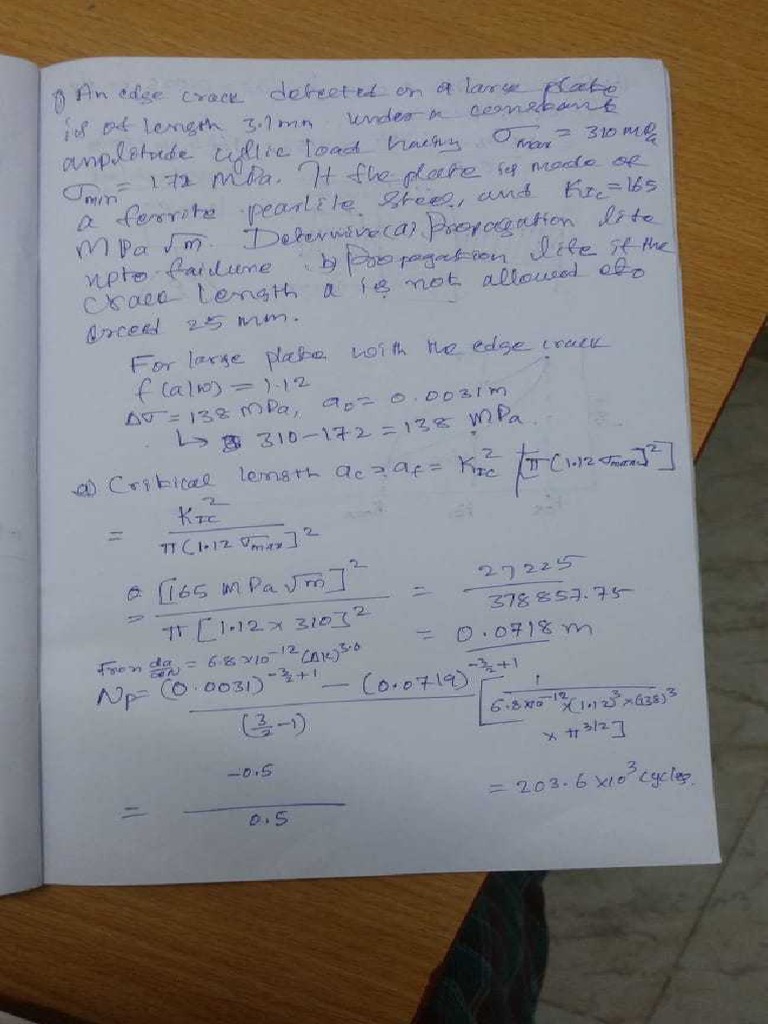 Q An edge crack detected on a large plate
is of length 3.1mm under a constant
amplitude cyclic load having σmax = 310 MPa
σmin = 172 MPa. If the plate is made of
a ferrite pearlite steel, and KIC = 165
MPa √m. Determine (a) Propagation life
upto failure b) Propagation life if the
crack length a is not allowed to
exceed 25 mm.
For large plate with the edge crack
f(a/w) = 1.12
Δσ = 138 MPa, a0 = 0.0031m
↳ 310-172 = 138 MPa.
a) Critical length ac = af = KIC² / [π(1.12 σmax)²]
= KIC² / π(1.12 σmax]²
= [165 MPa √m]² / π[1.12 x 310]² = 27225 / 378857.75
= 0.0718 m
From da/dN = 6.8 x10⁻¹² (ΔK)^3.0
Np = (0.0031)^-3/2+1 - (0.0719)^-3/2+1 / (3/2 -1) [1 / 6.8 x10⁻¹² x(1.12)³ x(138)³ x π^3/2]
= -0.5 / 0.5 = 203.6 x10³ cycles.